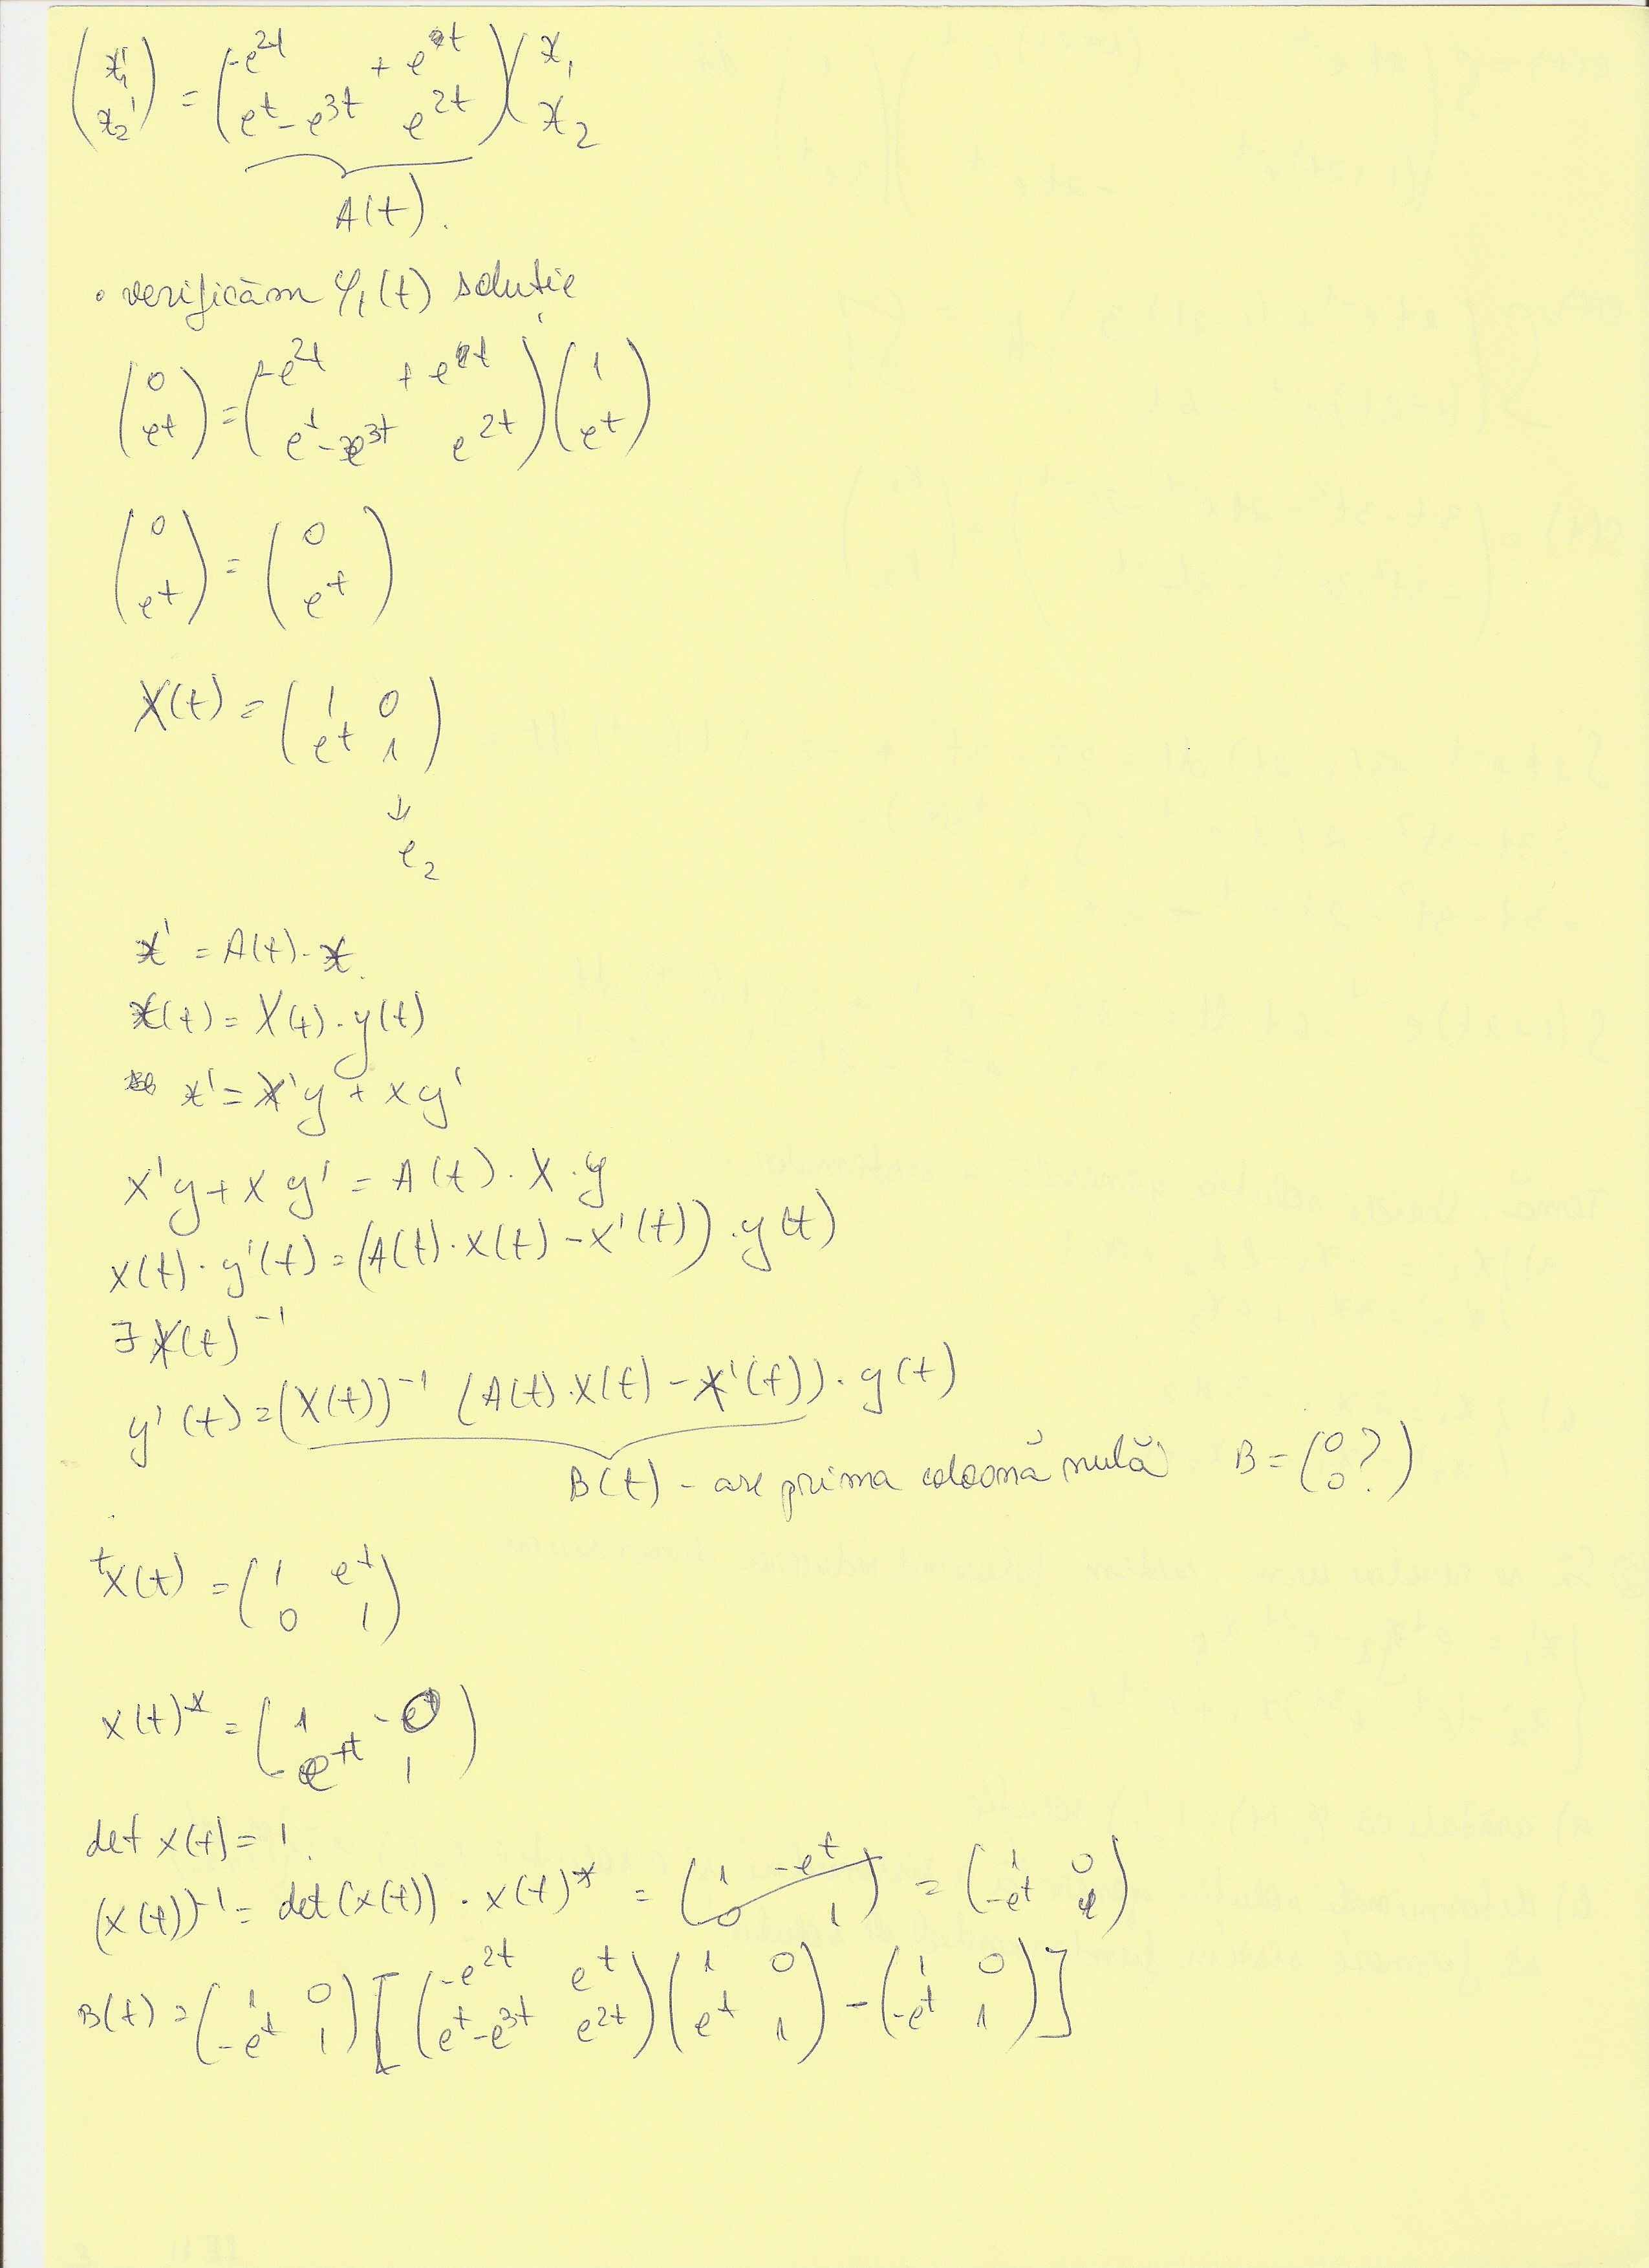 (x₁' x₂') = (-e^{2t} + e^{t} ; e^t - e^{3t} e^{2t}) (x₁ x₂)
A(t).
• verificăm φ₁(t) soluție
(0 ; e^t) = (-e^{2t} + e^{t} ; e^t - e^{3t} e^{2t}) (1 ; e^t)
(0 ; e^t) = (0 ; e^t)
X(t) = (1 0 ; e^t 1)
↓
e₂
x' = A(t)·x.
x(t) = X(t)·y(t)
x' = X'y + xy'
x'y + x y' = A(t)·X·y
x(t)·y'(t) = (A(t)·x(t) - x'(t))·y(t)
∃ X(t)^{-1}
y'(t) = (X(t))^{-1} (A(t)·X(t) - X'(t))·y(t)
B(t) - are prima coloană nulă B = (0 ? ; 0)
^tX(t) = (1 e^t ; 0 1)
x(t)* = (1 -0 ; -e^t 1)
det x(t) = 1.
(x(t))^{-1} = det(x(t))·x(t)* = (1 -e^t ; 0 1) = (1 0 ; -e^t 1)
B(t) = (1 0 ; -e^t 1) [(-e^{2t} e^t ; e^t - e^{3t} e^{2t}) (1 0 ; e^t 1) - (1 0 ; -e^t 1)]